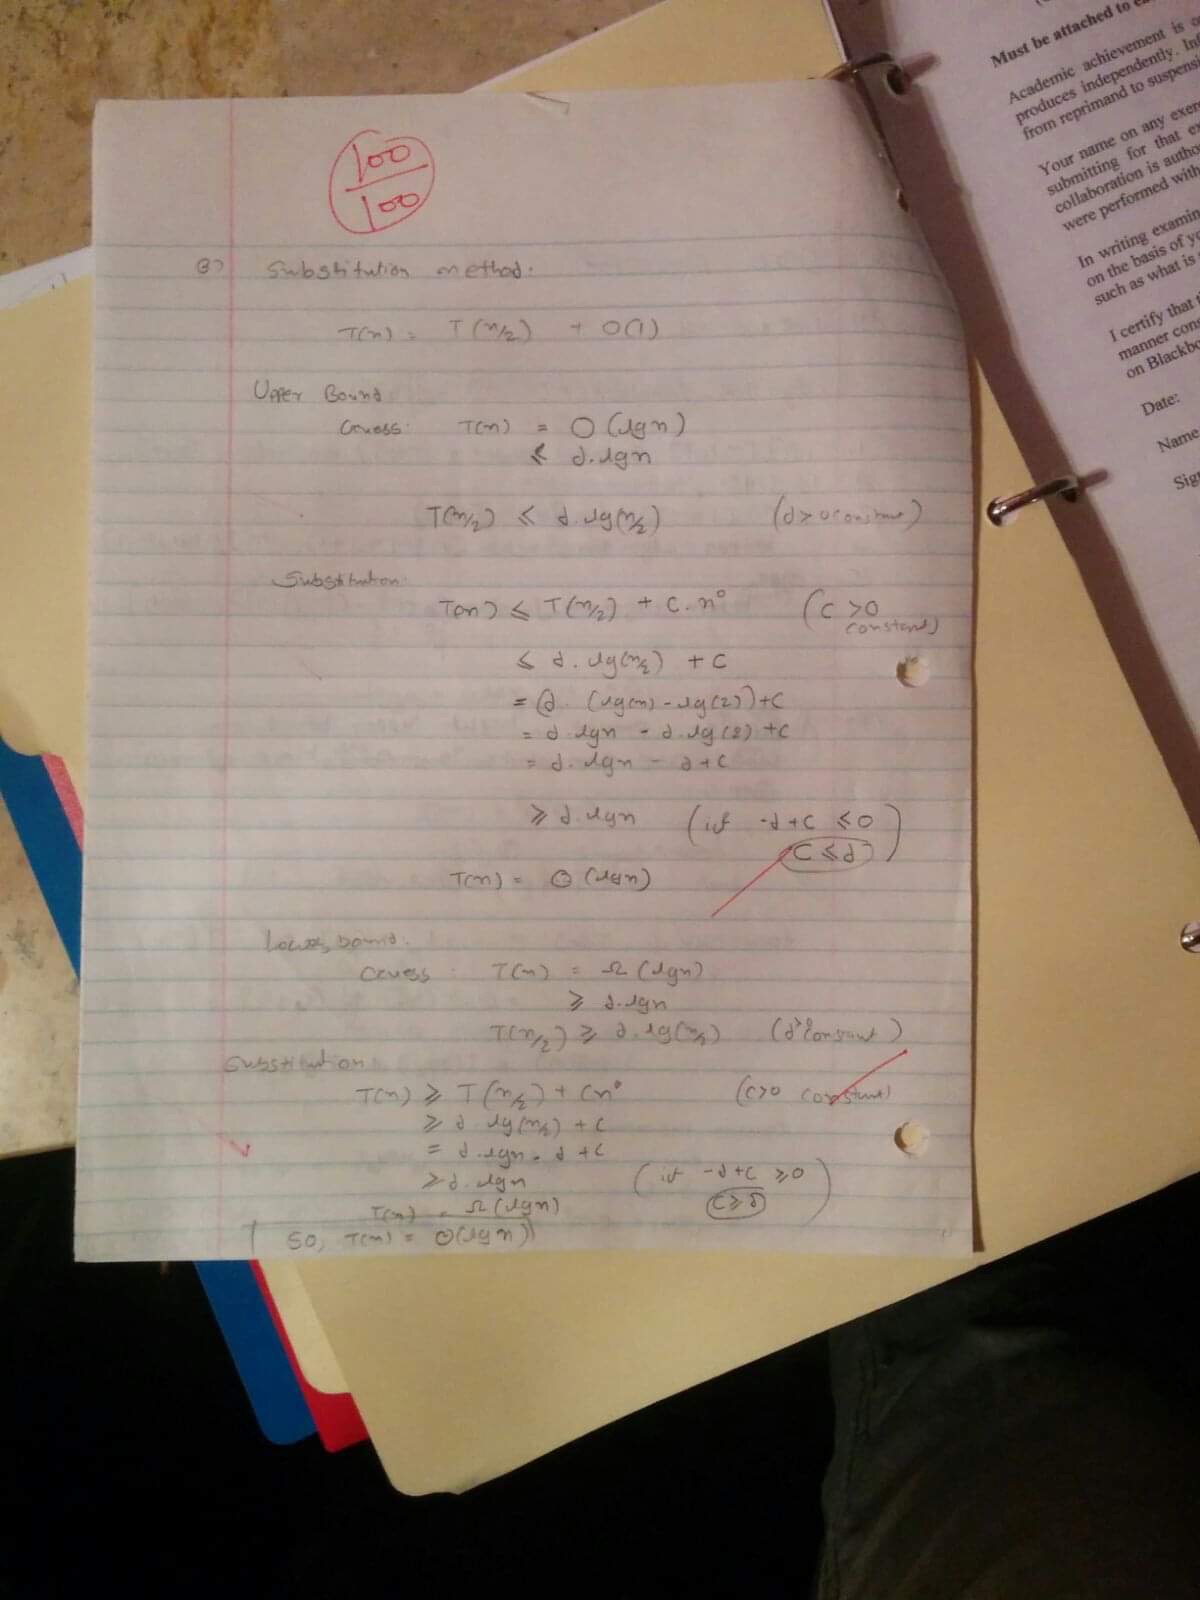 100
100
3) Substitution method.
T(n) = T(n/2) + O(1)
Upper Bound
Guess: T(n) = O(lgn)
≤ d.lgn
T(n/2) ≤ d.lg(n/2) (d>0 constant)
Substitution.
T(n) ≤ T(n/2) + c.n⁰ (c >0
constant)
≤ d.lg(n/2) + c
= (d. (lg(n) - lg(2)) + c
= d lgn - d.lg(2) + c
= d.lgn - d + c
≥ d.lgn (if -d+c ≤ 0)
c ≤ d
T(n) = O(lgn)
Lower bound.
Guess: T(n) = Ω(lgn)
≥ d.lgn
T(n/2) ≥ d.lg(n/2) (d>0 constant)
Substitution
T(n) ≥ T(n/2) + cn⁰ (c>0 constant)
≥ d lg(n/2) + c
= d.lgn - d + c
≥ d.lgn (if -d+c ≥ 0)
c ≥ d
T(n) = Ω(lgn)
So, T(n) = Θ(lgn)
Must be attached to
Academic achievement is
produces independently.
from reprimand to
Your name on any
submitting for that
collaboration is
were performed
In writing
on the basis of
such as what is
I certify that
manner
on
Date:
Name